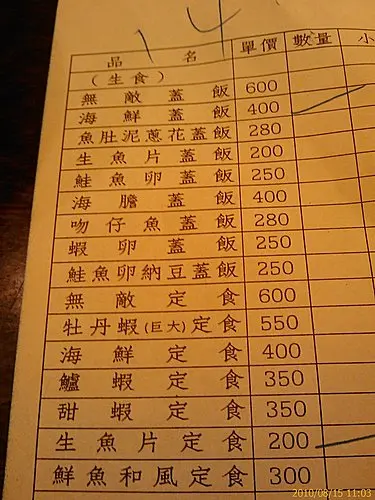 14
品名 單價 數量 小
（生食）
無敵蓋飯 600
海鮮蓋飯 400
魚肚泥蔥花蓋飯 280
生魚片蓋飯 200
鮭魚卵蓋飯 250
海膽蓋飯 400
吻仔魚蓋飯 280
蝦卵蓋飯 250
鮭魚卵納豆蓋飯 250
無敵定食 600
牡丹蝦(巨大)定食 550
海鮮定食 400
鱸蝦定食 350
甜蝦定食 350
生魚片定食 200
鮮魚和風定食 300
2010/08/15 11:03